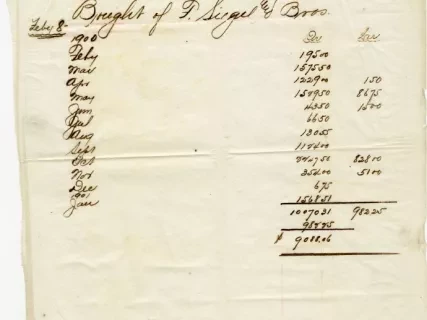 Bought of F. Siegel & Bros.
Feby 8-
1900 Dr Cr
Feby 195.00
Mar 1575.50
Apr 1229.00 1.50
May 86.75
Jun 43.50 15.00
Jul 66.50
Aug 130.55
Sept
Oct 828.00
Nov 354.00 51.00
Dec 6.75
1901
Jan 1568.51
10070.31 982.25
982.25
$ 9088.06